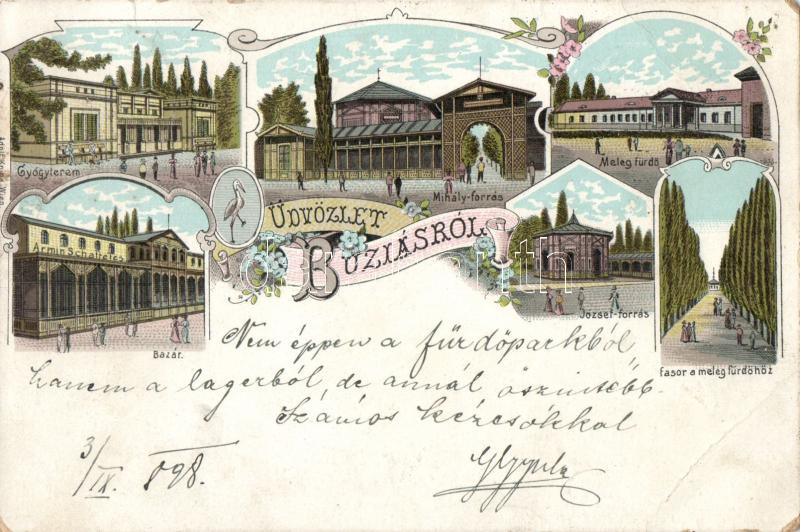 Gyógyterem
Mihály-forrás
Meleg fürdő
Armin Schäffer és
Bazár.
ÜDVÖZLET
BUZIÁSRÓL
József-forrás
fasor a meleg fürdőhöz
Nem éppen a fürdőparkból
hanem a lagerból, de annál őszintébb.
Számos kézcsókkal
3/IX. 898.